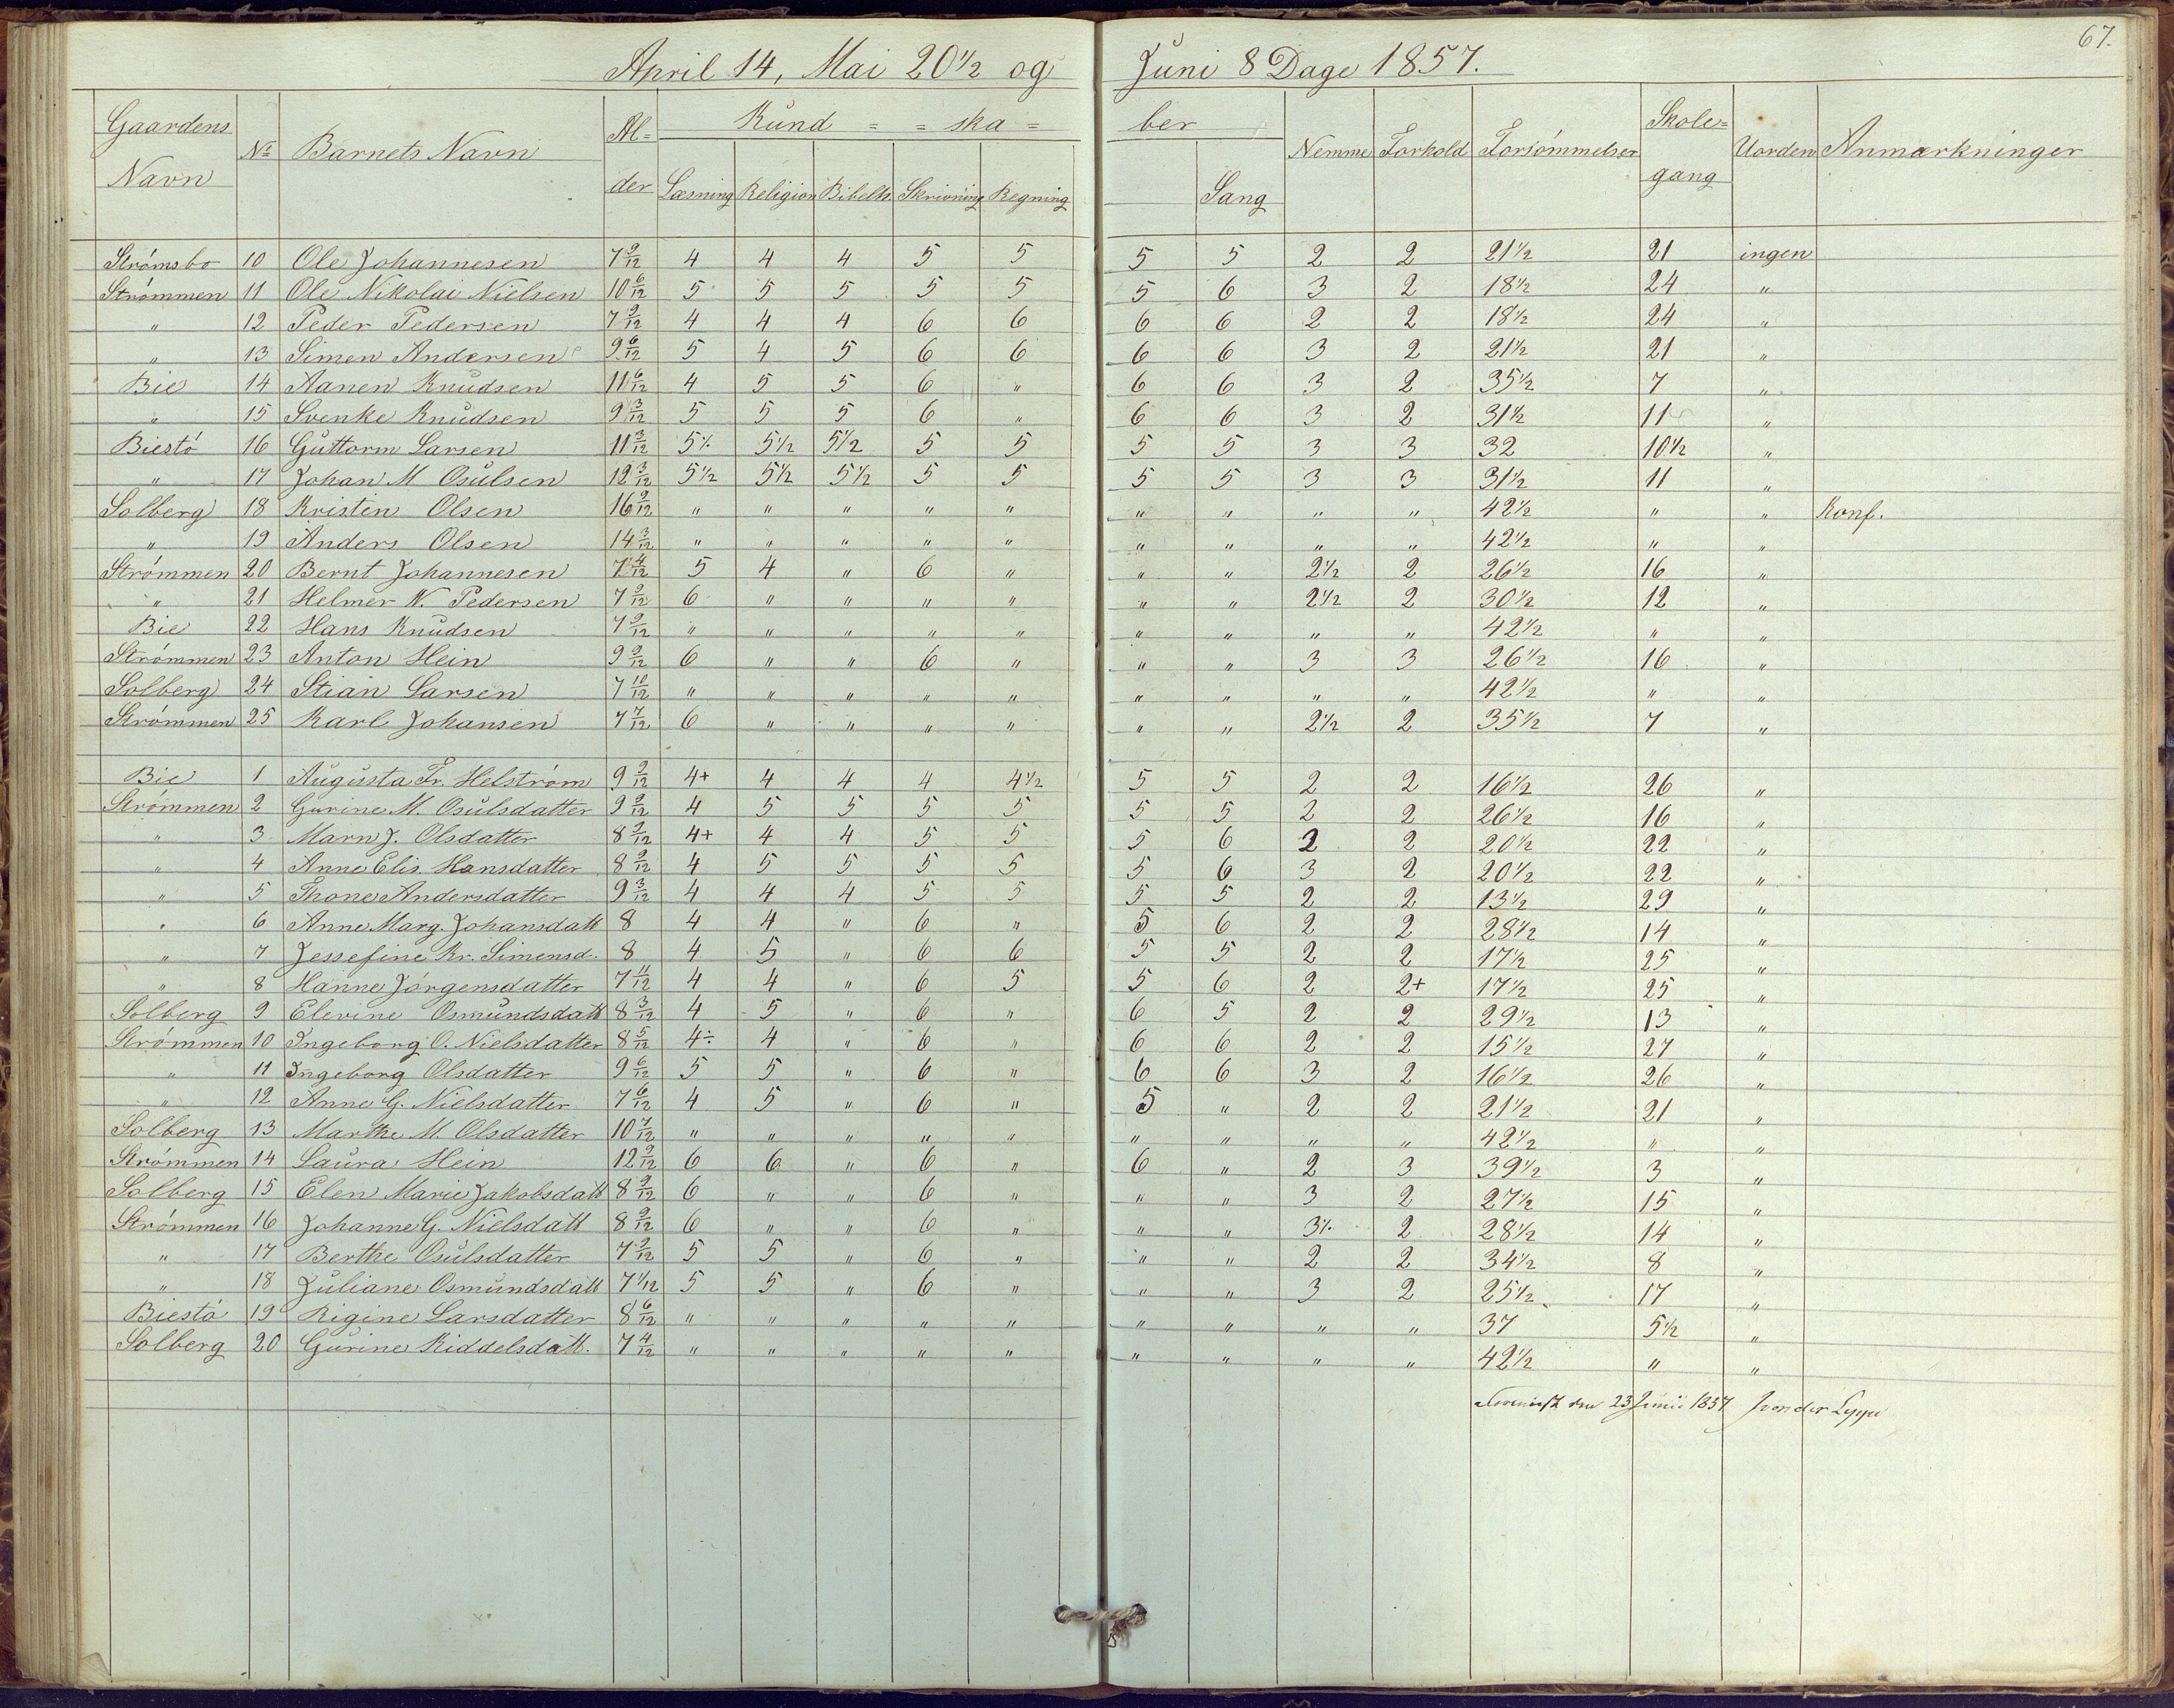 67.
April 14, Mai 20 1/2 og Juni 8 Dage 1857.
Gaardens Navn No Barnets Navn Al-der Kund = = ska = ber Nemme Forhold Forsömmelser Skole-gang Uorden Anmærkninger
Læsning Religion Bibelh. Skrivning Regning Sang
Strömsbo 10 Ole Johannesen 7 9/12 4 4 4 5 5 5 5 2 2 21 1/2 21 ingen
Strömmen 11 Ole Nikolai Nielsen 10 6/12 5 5 5 5 5 5 6 3 2 18 1/2 24 "
" 12 Peder Pedersen 7 9/12 4 4 4 6 6 6 6 2 2 18 1/2 24 "
" 13 Simen Andersen 9 6/12 5 4 5 6 6 6 6 3 2 21 1/2 21 "
Bie 14 Aanen Knudsen 11 6/12 4 5 5 6 " 6 6 3 2 35 1/2 7 "
" 15 Svenke Knudsen 9 3/12 5 5 5 6 " 6 6 3 2 31 1/2 11 "
Biestö 16 Guttorm Larsen 11 3/12 5 1/. 5 1/2 5 1/2 5 5 5 5 3 3 32 10 1/2 "
" 17 Johan M Osulsen 12 3/12 5 1/2 5 1/2 5 1/2 5 5 5 5 3 3 31 1/2 11 "
Solberg 18 Kristen Olsen 16 9/12 " " " " " " " " " 42 1/2 " " Konf.
" 19 Anders Olsen 14 3/12 " " " " " " " " " 42 1/2 " "
Strömmen 20 Bernt Johannesen 7 4/12 5 4 " 6 " " " 2 1/2 2 26 1/2 16 "
" 21 Helmer N. Pedersen 7 9/12 6 " " " " " " 2 1/2 2 30 1/2 12 "
Bie 22 Hans Knudsen 7 9/12 " " " " " " " " " 42 1/2 " "
Strömmen 23 Anton Hein 9 9/12 6 " " 6 " " " 3 3 26 1/2 16 "
Solberg 24 Stian Larsen 7 10/12 " " " " " " " " " 42 1/2 " "
Strömmen 25 Karl Johansen 7 7/12 6 " " " " " " 2 1/2 2 35 1/2 7 "
Bie 1 Augusta Fr. Helström 9 9/12 4+ 4 4 4 4 1/2 5 5 2 2 16 1/2 26 "
Strömmen 2 Gurine M. Osulsdatter 9 9/12 4 5 5 5 5 5 5 2 2 26 1/2 16 "
" 3 Marn J. Olsdatter 8 9/12 4+ 4 4 5 5 5 6 2 2 20 1/2 22 "
" 4 Anne Elis. Hansdatter 8 9/12 4 5 5 5 5 5 6 3 2 20 1/2 22 "
" 5 Thone Andersdatter 9 3/12 4 4 4 5 5 5 5 2 2 13 1/2 29 "
" 6 Anne Marg. Johansdatt 8 4 4 " 6 " 5 6 2 2 28 1/2 14 "
" 7 Jessefine Kr. Simensd. 8 4 5 " 6 6 5 5 2 2 17 1/2 25 "
" 8 Hanne Jörgensdatter 7 11/12 4 4 " 6 5 5 6 2 2+ 17 1/2 25 "
Solberg 9 Elevine Osmundsdatt 8 3/12 4 5 " 6 " 6 5 2 2 29 1/2 13 "
Strömmen 10 Ingeborg O. Nielsdatter 8 5/12 4÷ 4 " 6 " 6 6 2 2 15 1/2 27 "
" 11 Ingeborg Olsdatter 9 6/12 5 5 " 6 " 6 6 3 2 16 1/2 26 "
" 12 Anne G. Nielsdatter 7 6/12 4 5 " 6 " 5 " 2 2 21 1/2 21 "
Solberg 13 Marthe M. Olsdatter 10 7/12 " " " " " " " " " 42 1/2 " "
Strömmen 14 Laura Hein 12 9/12 6 6 " 6 " 6 " 2 3 39 1/2 3 "
Solberg 15 Elen Marie Jakobsdatt 8 9/12 6 " " 6 " " " 3 2 27 1/2 15 "
Strömmen 16 Johanne G. Nielsdatt 8 9/12 6 " " 6 " " " 3 1/. 2 28 1/2 14 "
" 17 Berthe Osulsdatter 7 9/12 5 5 " 6 " " " 2 2 34 1/2 8 "
" 18 Juliane Osmundsdatt 7 1/12 5 5 " 6 " " " 3 2 25 1/2 17 "
Biestö 19 Rigine Larsdatter 8 6/12 " " " " " " " " " 37 5 1/2 "
Solberg 20 Gurine Kiddelsdatt. 7 4/12 " " " " " " " " " 42 1/2 " "
den 23 Juni 1857